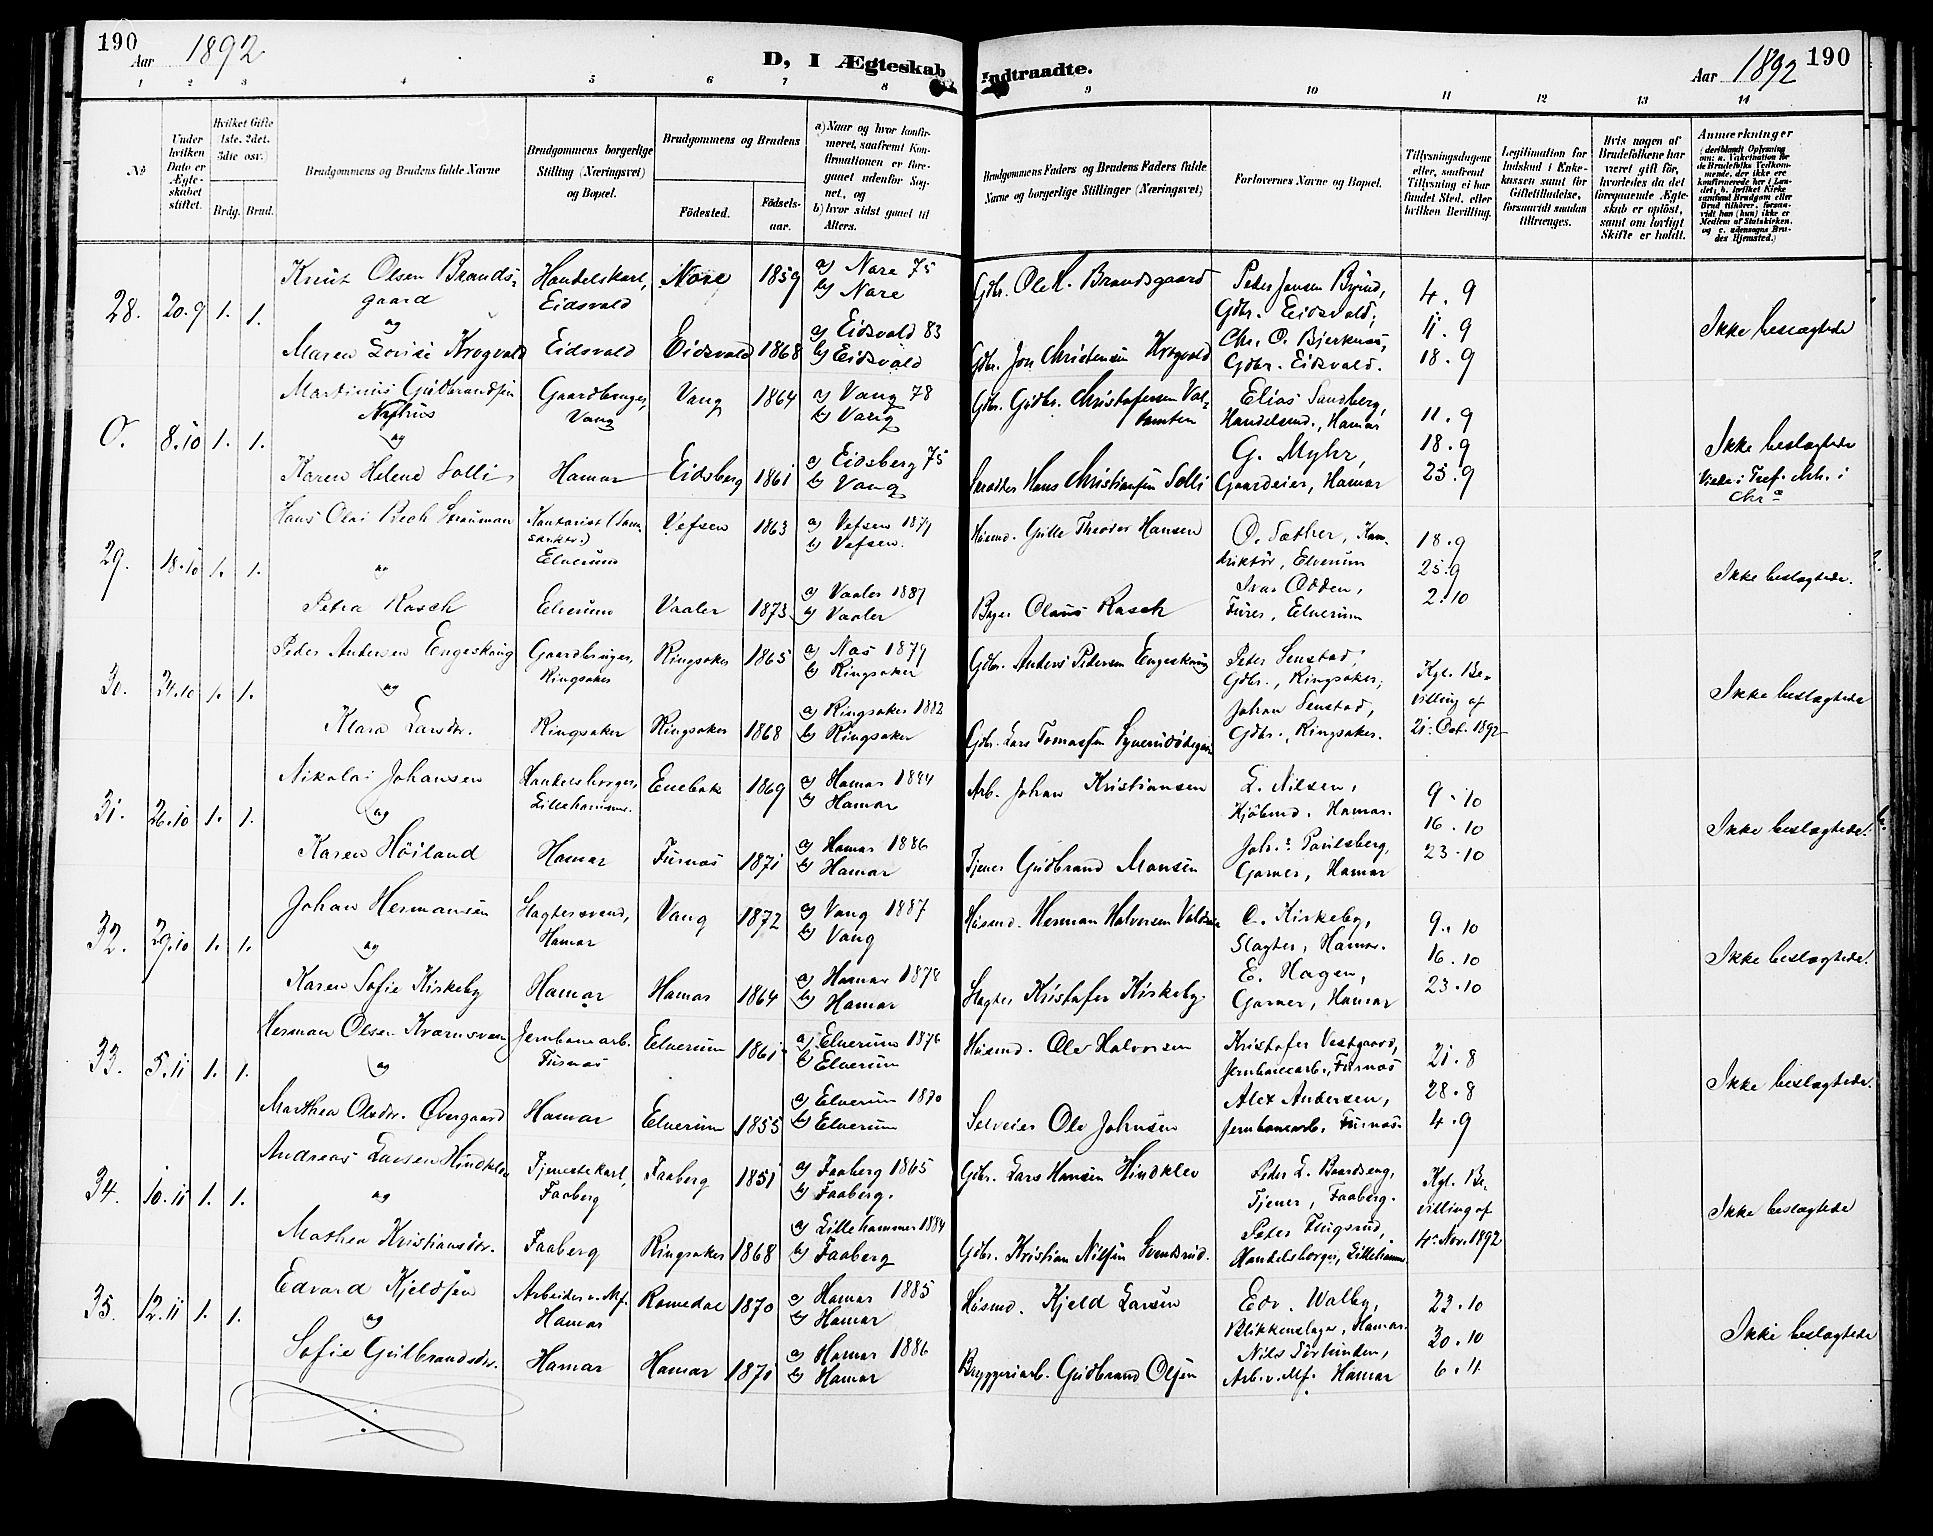 190
Aar 1892
D, I Ægteskab Indtraadte.
Aar 1892 190
1 2 3 4 5 6 7 8 9 10 11 12 13 14
No
Under hvilken Dato er Ægteskabet stiftet.
Hvilket Gifte (1ste, 2det, 3die osv.)
Brdg. Brud.
Brudgommens og Brudens fulde Navne
Brudgommens borgerlige Stilling (Næringsvei) og Bopæl.
Brudgommens og Brudens
Fødested.
Fødselsaar.
a) Naar og hvor konfirmeret, saafremt Konfirmationen er foregaaet udenfor Sognet, og
b) hvor sidst gaaet til Alters.
Brudgommens Faders og Brudens Faders fulde Navne og borgerlige Stillinger (Næringsvei)
Forlovernes Navne og Bopæl.
Tillysningsdagene eller, saafremt Tillysning ei har fundet Sted, efter hvilken Bevilling.
Legitimation for Indskud i Enkekassen samt for Giftetilladelse, forsaavidt saadan tiltrænges.
Hvis nogen af Brudefolkene har været gift før, hvorledes da det foregaaende Ægteskab er opløst, samt om lovligt Skifte er holdt.
Anmærkninger (deriblandt Oplysning om: a. Vakcination for de Brudefolks Vedkommende, der ikke ere konfirmerede her i Landet; b. hvilket Kirkesamfund Brudgom eller Brud tilhører, forsaavidt han (hun) ikke er Medlem af Statskirken, og c. udensogns Brudes Hjemsted.)
28. 20.9 1. 1.
Knut Olsen Brandsgaard
og
Maren Lovise Krogvold
Handelskarl, Eidsvold
Eidsvold
Nore 1859
Eidsvold 1868
a) Nore 75
b) Nore
a) Eidsvold 83
b) Eidsvold
Gbr. Ole K. Brandsgaard
Gbr. Jon Christensen Krogvold
Peder Jansen Byrud,
Gbr. Eidsvold;
Chr. O. Bjerknæs,
Gbr. Eidsvold.
4. 9
11. 9
18. 9
Ikke beslægtede
O. 8.10 1. 1.
Martinus Gudbrandsen Nyhus
og
Karen Helene Solli
Gaardbruger, Vang
Hamar
Vang 1864
Eidsberg 1861
a) Vang 78
b) Vang
a) Eidsberg 75
b) Vang
Gbr. Gudbr. Christofersen
Hans Christiansen Solli
Elias Sundberg,
Handelsmd., Hamar
G. Myhr,
Gaardeier, Hamar
11. 9
18. 9
25. 9
Ikke beslægtede
Viede i Tref. Kirk. i Chr.a
29. 18.10 1. 1.
Hans Olai Bech Strauman
og
Petra Rasch
Kontorist
Elverum
Elverum
Vefsen 1863
Vaaler 1873
a) Vefsen 1879
b) Vefsen.
a) Vaaler 1887
b) Vaaler
Husmd. Theodor Hansen
Bager Claus Rasch
O. Sæther,
Elverum
Ivar Odden,
Furer, Elverum
18.9
25.9
2.10
Ikke beslægtede.
30. 24.10 1. 1.
Peder Andersen Engeskaug
og
Klara Larsdr.
Gaardbruger, Ringsaker
Ringsaker
Ringsaker 1865
Ringsaker 1868
a) Næs 1879
b) Ringsaker
a) Ringsaker 1882
b) Ringsaker
Gbr. Anders Pedersen Engeskaug
Gbr. Lars Tomassen
Peter Senstad,
Gdbr., Ringsaker;
Johan Senstad,
Gdbr., Ringsaker.
Kgl. Bevilling af
21. Oct. 1892
Ikke beslægtede
31. 26.10 1. 1.
Nikolai Johansen
og
Karen Høiland
Handelsborger, Lillehammer.
Hamar
Enebak 1869
Furnæs 1871
a) Hamar 1884
b) Hamar
a) Hamar 1886
b) Hamar
Arb. Johan Kristiansen
Tjener Gudbrand Monsen
L. Nilsen,
Kjøbmd. Hamar.
Joh.s Paulsberg,
Garver, Hamar
9.10
16.10
23.10
Ikke beslægtede.
32. 29.10 1. 1.
Johan Hermansen
og
Karen Sofie Kirkeby
Slagtersvend, Hamar
Hamar
Vang 1872
Hamar 1864
a) Vang 1887
b) Vang
a) Hamar 1878
b) Hamar
Husmd. Herman Halvorsen
Slagter Kristofer Kirkeby.
O. Kirkeby,
Slagter, Hamar.
E. Hagen,
Garver, Hamar
9.10
16.10
23.10
Ikke beslægtede.
33. 5.11 1. 1.
Herman Olsen Kværnsveen
og
Marthea Olsdr. Øvergaard
Jernbanearb. Furnæs
Hamar
Elverum 1861
Elverum 1855
a) Elverum 1876
b) Elverum
a) Elverum 1870
b) Elverum
Husmd. Ole Halvorsen
Selveier Ole Johnsen
Kristofer Vestgaard,
Jernbanearb., Furnæs
Alex Andersen,
Jernbanearb. Furnæs
21.8
28.8
4.9
Ikke beslægtede.
34. 10.11 1. 1.
Andreas Larsen Hindklev
og
Mathea Kristiansdr.
Tjenestekarl, Faaberg
Faaberg
Faaberg 1851
Ringsaker 1868
a) Faaberg 1865
b) Faaberg.
a) Lillehammer 1884
b) Faaberg
Gbr. Lars Hansen Hindklev
Gbr. Kristian Nilsen
Peder L. Baardseng,
Tjener, Faaberg.
Peter Flugsrud,
Handelsborger, Lillehammer
Kgl. Bevilling af
4. Nov. 1892
Ikke beslægtede
35. 12.11 1. 1.
Edvard Kjeldsen
og
Sofie Gulbrandsdr.
Arbeider v. Mf. Hamar
Hamar
Romedal 1870
Hamar 1871
a) Hamar 1885
b) Hamar
a) Hamar 1886
b) Hamar
Husmd. Kjeld Larsen
Bryggeriarb. Gudbrand Olsen
Edv. Walby,
Blikkenslager, Hamar.
Nils
Arb. v. Mf. Hamar
23.10
30.10
6.11
Ikke beslægtede